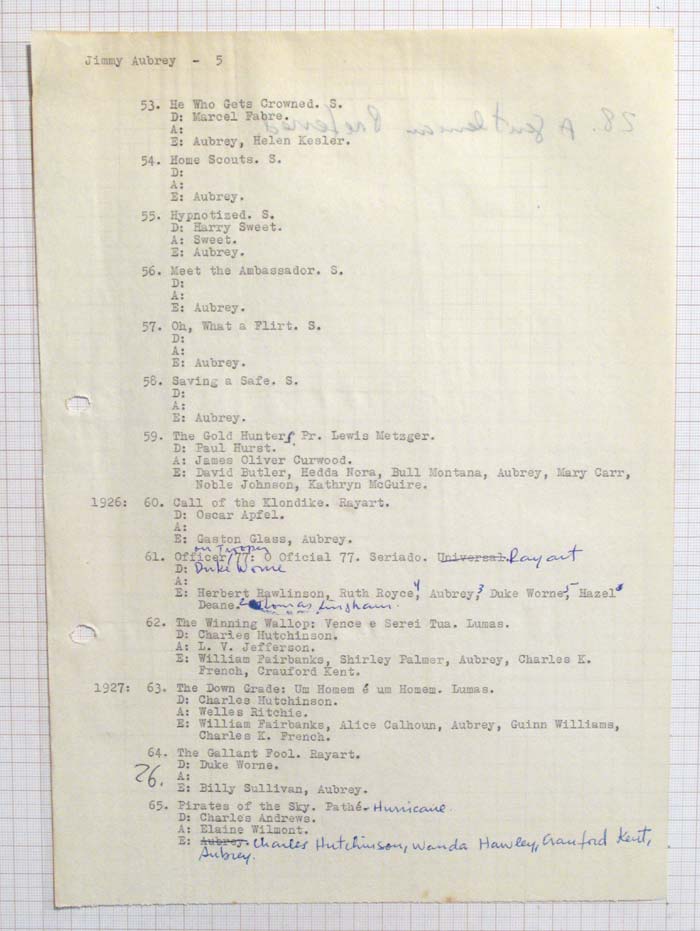 Jimmy Aubrey - 5
53. He Who Gets Crowned. S.
D: Marcel Fabre.
A:
E: Aubrey, Helen Kesler.
54. Home Scouts. S.
D:
A:
E: Aubrey.
55. Hypnotized. S.
D: Harry Sweet.
A: Sweet.
E: Aubrey.
56. Meet the Ambassador. S.
D:
A:
E: Aubrey.
57. Oh, What a Flirt. S.
D:
A:
E: Aubrey.
58. Saving a Safe. S.
D:
A:
E: Aubrey.
59. The Gold Hunters Pr. Lewis Metzger.
D: Paul Hurst.
A: James Oliver Curwood.
E: David Butler, Hedda Nora, Bull Montana, Aubrey, Mary Carr,
Noble Johnson, Kathryn McGuire.
1926: 60. Call of the Klondike. Rayart.
D: Oscar Apfel.
A:
E: Gaston Glass, Aubrey.
Trooper
61. Officer 77: O Oficial 77. Seriado. Universal. Rayart
D: Duke Worne
A:
E: Herbert Rawlinson, Ruth Royce, 4 Aubrey, 3 Duke Worne, 5 Hazel
Deane. 2 Thomas Lingham.
62. The Winning Wallop: Vence e Serei Tua. Lumas.
D: Charles Hutchinson.
A: L. V. Jefferson.
E: William Fairbanks, Shirley Palmer, Aubrey, Charles K.
French, Crauford Kent.
1927: 63. The Down Grade: Um Homem é um Homem. Lumas.
D: Charles Hutchinson.
A: Welles Ritchie.
E: William Fairbanks, Alice Calhoun, Aubrey, Guinn Williams,
Charles K. French.
64. The Gallant Fool. Rayart.
D: Duke Worne.
26. A:
E: Billy Sullivan, Aubrey.
65. Pirates of the Sky. Pathé - Hurricane.
D: Charles Andrews.
A: Elaine Wilmont.
E: Aubrey. Charles Hutchinson, Wanda Hawley, Crauford Kent,
Aubrey.
28. A Gentleman Preferred